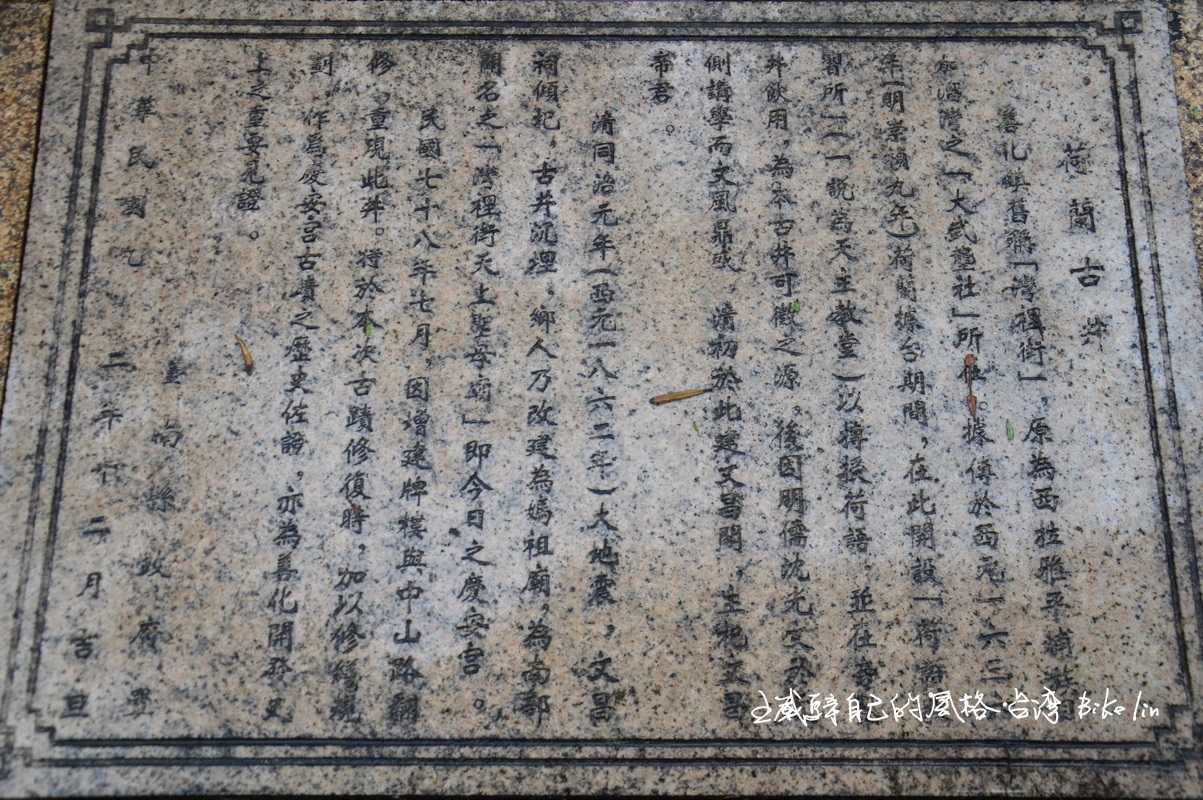 荷蘭古井
善化鎮舊稱「灣裡街」,原為西拉雅平埔族
在濁灣之「大武壟社」所在。據傳於西元一六三
年(明崇禎九年)荷蘭據台期間,在此開設「荷語
習所」(一說為天主教堂)以傳授荷語,並在旁
井飲用,為本古井可徵之源。後因明儒沈光文於
側講學而文風鼎盛,清初於此建文昌閣,主祀文昌
帝君。
清同治元年(西元一八六二年)大地震,文昌
祠傾圮,古井沉埋,鄉人乃改建為媽祖廟,為南部
聞名之「灣裡街天上聖母廟」即今日之慶安宮。
民國七十八年七月,因增建牌樓與中山路翻
修,重現此井。特於本次古蹟修復時,加以修繕
作為慶安宮古蹟之歷史佐證,亦為善化開發史
上之重要見證。
臺南縣政府
中華民國九二年十二月吉旦
王威驛自己的風格台湾 Bike lin